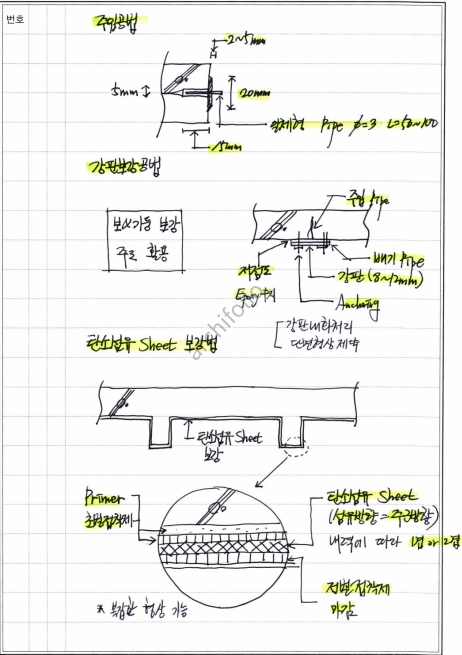 번호
주입공법
2~5mm
5mm
20mm
일체형 Pipe ø=3 L=50~100
15mm
강판보강공법
보&기둥 보강
주로 활용
주입 Pipe
배기 Pipe
강판(8~12mm)
Anchoring
저점도
Epoxy수지
강판내화처리
단면형상 제약
archifolio
탄소섬유 Sheet 보강법
탄소섬유 Sheet
보강
Primer
함침접착제
탄소섬유 Sheet
(섬유방향=주근방향)
내력에 따라 1겹 or 2겹
접착제
마감
* 복잡한 형상 가능